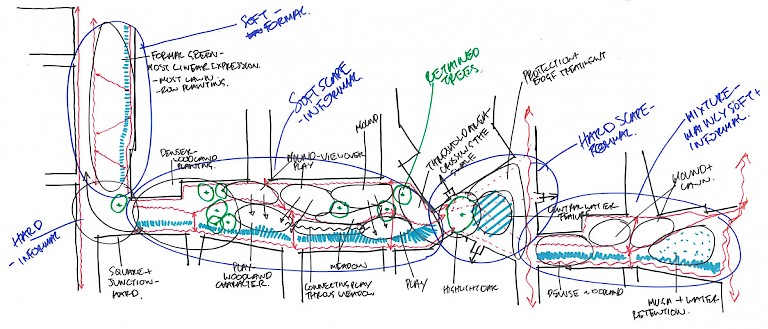 SOFT -
FORMAL.
FORMAL GREEN -
MOST LINEAR EXPRESSION.
- MOST LAWN.
- ROW PLANTING.
SOFTSCAPE
- INFORMAL
RETAINED
TREES
PROTECTION +
EDGE TREATMENT
DENSER
WOODLAND
PLANTING.
MOUND - VIEW OVER
PLAY
MOUND
THRESHOLD AREA -
CROSSING THE
HARDSCAPE -
FORMAL
MIXTURE -
MAINLY SOFT +
INFORMAL.
MOUND +
LAWN.
CENTRAL WATER
FEATURE
HARD
- INFORMAL
SQUARE +
JUNCTION -
HARD.
PLAY
WOODLAND
CHARACTER.
MEADOW
CONNECTING PLAY
THROUGH MEADOW
PLAY
HIGHLIGHT OAK
DENSE WOODLAND
WATER
RETENTION.